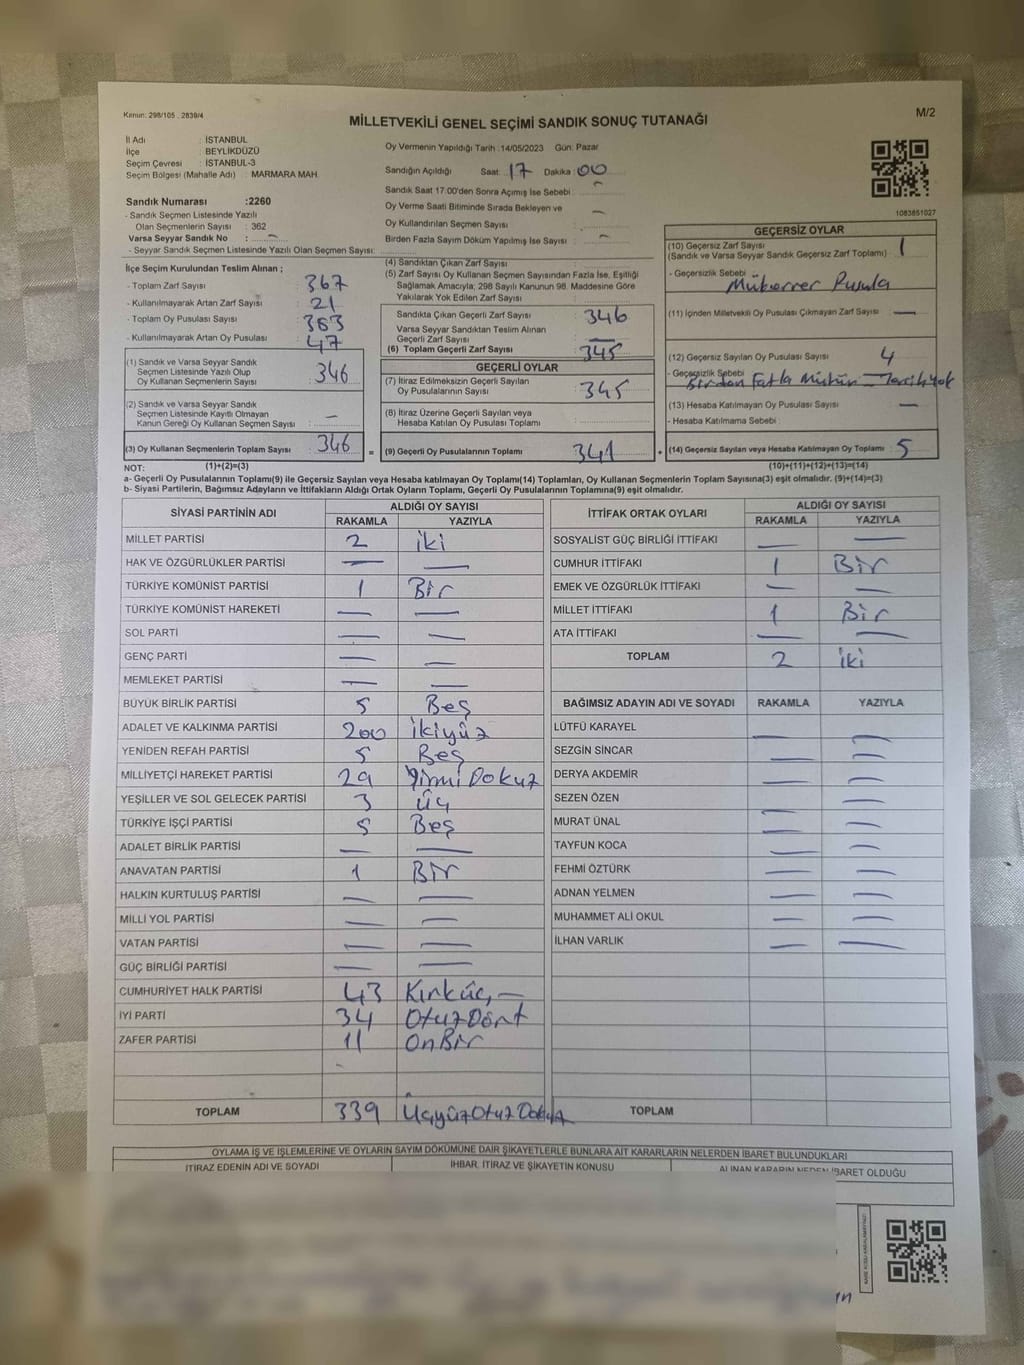 Kanun: 298/105 , 2839/4
M/2
MİLLETVEKİLİ GENEL SEÇİMİ SANDIK SONUÇ TUTANAĞI
İl Adı : İSTANBUL
İlçe : BEYLİKDÜZÜ
Seçim Çevresi : İSTANBUL-3
Seçim Bölgesi (Mahalle Adı) : MARMARA MAH.
Sandık Numarası :2260
- Sandık Seçmen Listesinde Yazılı
Olan Seçmenlerin Sayısı : 362
Varsa Seyyar Sandık No : –
- Seyyar Sandık Seçmen Listesinde Yazılı Olan Seçmen Sayısı:
Oy Vermenin Yapıldığı Tarih :14/05/2023 Gün: Pazar
Sandığın Açıldığı Saat: 17 Dakika: 00
Sandık Saat 17:00'den Sonra Açımış İse Sebebi : –
Oy Verme Saati Bitiminde Sırada Bekleyen ve
Oy Kullandırılan Seçmen Sayısı : –
Birden Fazla Sayım Döküm Yapılmış İse Sayısı : –
1083851027
İlçe Seçim Kurulundan Teslim Alınan ;
- Toplam Zarf Sayısı : 367
- Kullanılmayarak Artan Zarf Sayısı : 21
- Toplam Oy Pusulası Sayısı : 363
- Kullanılmayarak Artan Oy Pusulası : 47
(1) Sandık ve Varsa Seyyar Sandık
Seçmen Listesinde Yazılı Olup
Oy Kullanan Seçmenlerin Sayısı : 346
(2) Sandık ve Varsa Seyyar Sandık
Seçmen Listesinde Kayıtlı Olmayan
Kanun Gereği Oy Kullanan Seçmen Sayısı : –
(3) Oy Kullanan Seçmenlerin Toplam Sayısı : 346
(4) Sandıktan Çıkan Zarf Sayısı :
(5) Zarf Sayısı Oy Kullanan Seçmen Sayısından Fazla İse, Eşitliği
Sağlamak Amacıyla; 298 Sayılı Kanunun 98. Maddesine Göre
Yakılarak Yok Edilen Zarf Sayısı :
Sandıkta Çıkan Geçerli Zarf Sayısı : 346
Varsa Seyyar Sandıktan Teslim Alınan
Geçerli Zarf Sayısı : —
(6) Toplam Geçerli Zarf Sayısı : 345
GEÇERLİ OYLAR
(7) İtiraz Edilmeksizin Geçerli Sayılan
Oy Pusulalarının Sayısı : 345
(8) İtiraz Üzerine Geçerli Sayılan veya
Hesaba Katılan Oy Pusulası Toplamı :
= (9) Geçerli Oy Pusulalarının Toplamı : 341
GEÇERSİZ OYLAR
(10) Geçersiz Zarf Sayısı : 1
(Sandık ve Varsa Seyyar Sandık Geçersiz Zarf Toplamı)
- Geçersizlik Sebebi :
Mükerrer Pusula
(11) İçinden Milletvekili Oy Pusulası Çıkmayan Zarf Sayısı : —
(12) Geçersiz Sayılan Oy Pusulası Sayısı : 4
- Geçersizlik Sebebi :
Birden Fazla Mühür
(13) Hesaba Katılmayan Oy Pusulası Sayısı : —
- Hesaba Katılmama Sebebi :
+ (14) Geçersiz Sayılan veya Hesaba Katılmayan Oy Toplamı : 5
NOT: (1)+(2)=(3) (10)+(11)+(12)+(13)=(14)
a- Geçerli Oy Pusulalarının Toplamı(9) ile Geçersiz Sayılan veya Hesaba katılmayan Oy Toplamı(14) Toplamları, Oy Kullanan Seçmenlerin Toplam Sayısına(3) eşit olmalıdır. (9)+(14)=(3)
b- Siyasi Partilerin, Bağımsız Adayların ve İttifakların Aldığı Ortak Oyların Toplamı, Geçerli Oy Pusulalarının Toplamına(9) eşit olmalıdır.
SİYASİ PARTİNİN ADI ALDIĞI OY SAYISI
RAKAMLA YAZIYLA
MİLLET PARTİSİ 2 iki
HAK VE ÖZGÜRLÜKLER PARTİSİ — —
TÜRKİYE KOMÜNİST PARTİSİ 1 Bir
TÜRKİYE KOMÜNİST HAREKETİ — —
SOL PARTİ — —
GENÇ PARTİ — —
MEMLEKET PARTİSİ — —
BÜYÜK BİRLİK PARTİSİ 5 Beş
ADALET VE KALKINMA PARTİSİ 200 ikiyüz
YENİDEN REFAH PARTİSİ 5 Beş
MİLLİYETÇİ HAREKET PARTİSİ 29 Yirmi Dokuz
YEŞİLLER VE SOL GELECEK PARTİSİ 3 üç
TÜRKİYE İŞÇİ PARTİSİ 5 Beş
ADALET BİRLİK PARTİSİ — —
ANAVATAN PARTİSİ 1 Bir
HALKIN KURTULUŞ PARTİSİ — —
MİLLİ YOL PARTİSİ — —
VATAN PARTİSİ — —
GÜÇ BİRLİĞİ PARTİSİ — —
CUMHURİYET HALK PARTİSİ 43 Kırküç —
İYİ PARTİ 34 OtuzDört
ZAFER PARTİSİ 11 OnBir
TOPLAM 339 ÜçyüzOtuzDokuz
İTTİFAK ORTAK OYLARI ALDIĞI OY SAYISI
RAKAMLA YAZIYLA
SOSYALİST GÜÇ BİRLİĞİ İTTİFAKI — —
CUMHUR İTTİFAKI 1 Bir
EMEK VE ÖZGÜRLÜK İTTİFAKI — —
MİLLET İTTİFAKI 1 Bir
ATA İTTİFAKI — —
TOPLAM 2 iki
BAĞIMSIZ ADAYIN ADI VE SOYADI RAKAMLA YAZIYLA
LÜTFÜ KARAYEL — —
SEZGİN SİNCAR — —
DERYA AKDEMİR — —
SEZEN ÖZEN — —
MURAT ÜNAL — —
TAYFUN KOCA — —
FEHMİ ÖZTÜRK — —
ADNAN YELMEN — —
MUHAMMET ALİ OKUL — —
İLHAN VARLIK — —
TOPLAM
OYLAMA İŞ VE İŞLEMLERİNE VE OYLARIN SAYIM DÖKÜMÜNE DAİR ŞİKAYETLERLE BUNLARA AİT KARARLARIN NELERDEN İBARET BULUNDUKLARI
İTİRAZ EDENİN ADI VE SOYADI İHBAR, İTİRAZ VE ŞİKAYETİN KONUSU ALINAN KARARIN NEDEN İBARET OLDUĞU